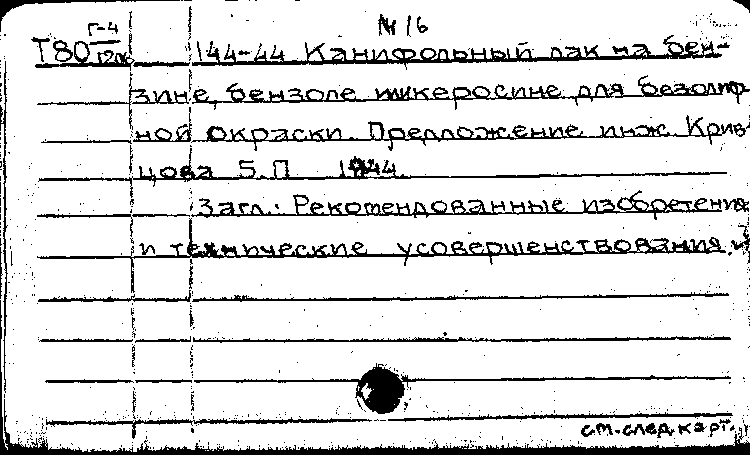 Г-4 № 16
Т80 144-44 Канифольный лак на бен-
зине, бензоле и керосине для безолиф-
ной окраски. Предложение инж. Крив-
цова Б.П 1944.
Загл.: Рекомендованные изобретения
и технические усовершенствования.
см. след. карт.